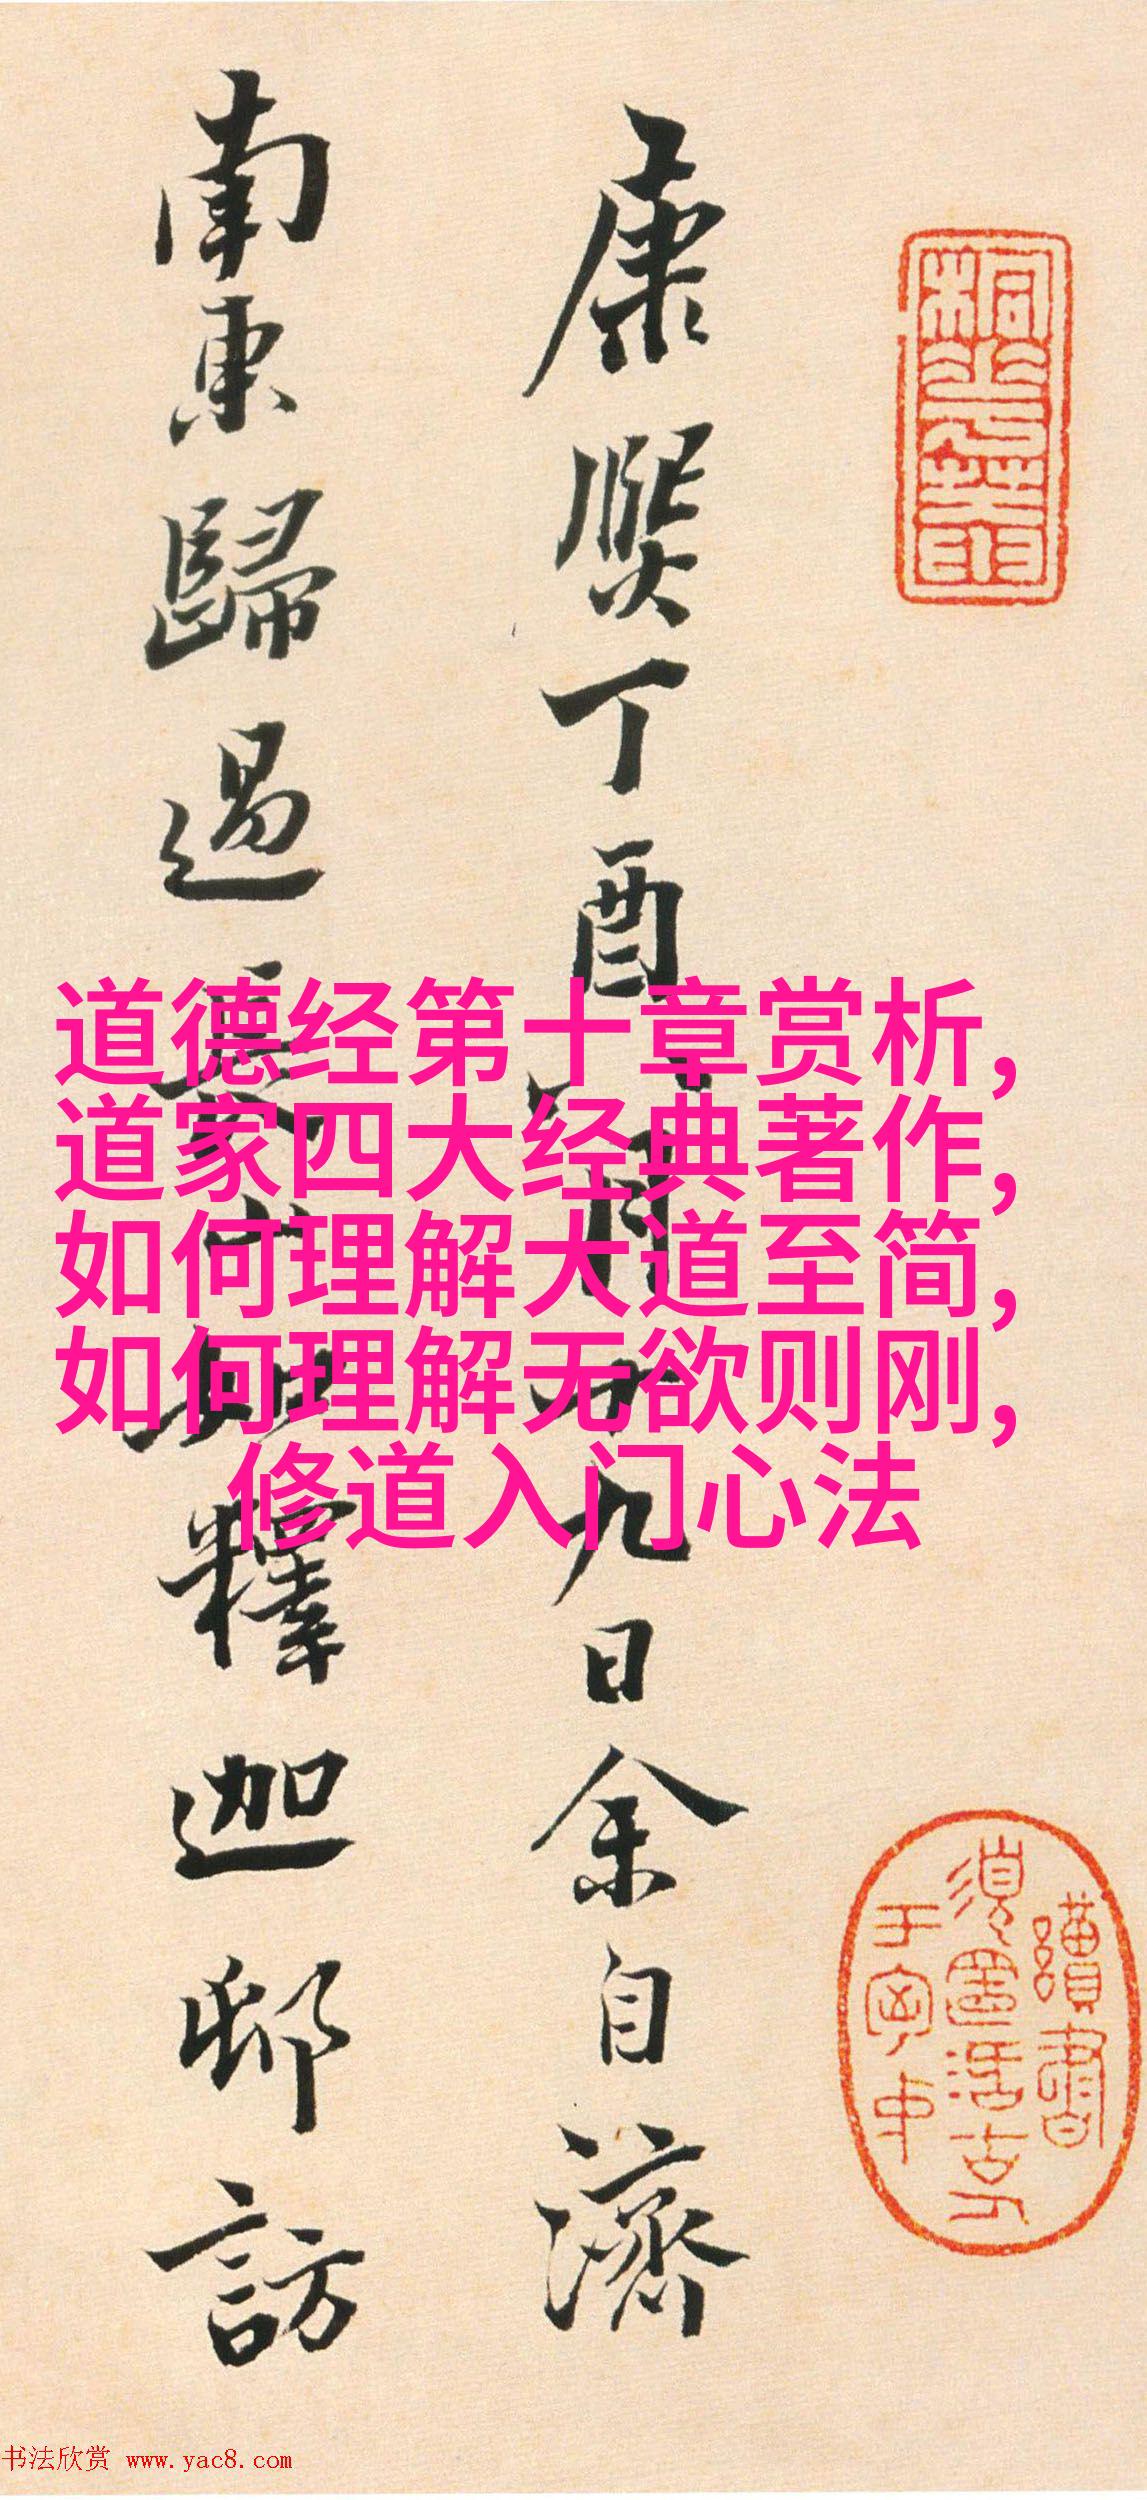 康熙丁酉月十九日余自濟
南東歸過長山如釋迦邨訪
道德经第十章赏析,
道家四大经典著作,
如何理解大道至简,
如何理解无欲则刚,
修道入门心法
书法欣赏 www.yac8.com